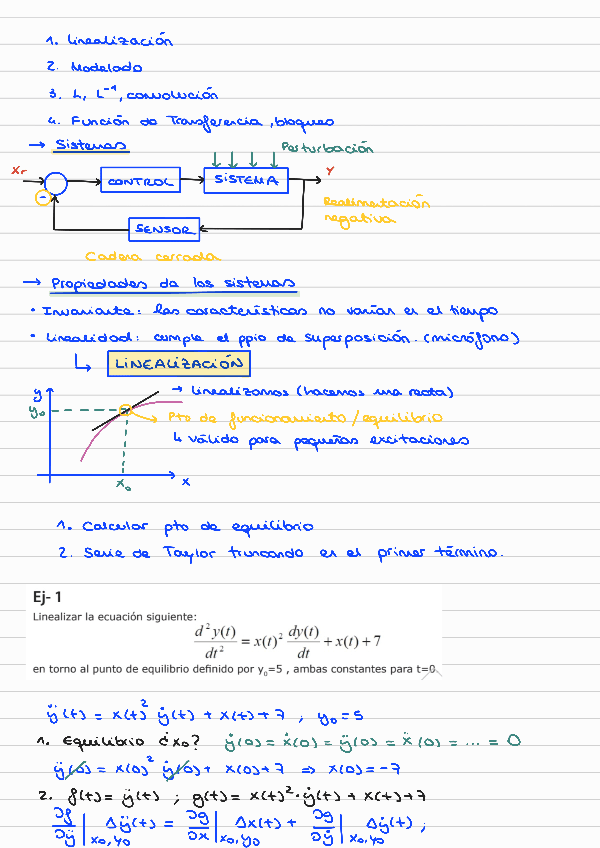 1. Linealización
2. Modelado
3. L, L⁻¹, convolución
4. Función de Transferencia, bloques
→ Sistemas
Perturbación
Xr
CONTROL
SISTEMA
Y
-
Realimentación
negativa
SENSOR
Cadena cerrada
→ Propiedades de los sistemas
• Invariante: las características no varían en el tiempo
• Linealidad: cumple el ppio de superposición. (micrófono)
↳ LINEALIZACIÓN
y
→ linealizamos (hacemos una recta)
y₀
→ Pto de funcionamiento/equilibrio
↳ válido para pequeñas excitaciones
x₀
x
1. Calcular pto de equilibrio
2. Serie de Taylor truncando en el primer término.
Ej- 1
Linealizar la ecuación siguiente:
d²y(t)/dt² = x(t)² dy(t)/dt + x(t) + 7
en torno al punto de equilibrio definido por y₀=5 , ambas constantes para t=0
ÿ(t) = x(t)² ẏ(t) + x(t) + 7 ; y₀ = 5
1. Equilibrio ¿x₀? ẏ(0) = ẋ(0) = ÿ(0) = ẍ(0) = ... = 0
ÿ(0) = x(0)² ẏ(0) + x(0) + 7 ⇒ x(0) = -7
2. f(t) = ÿ(t) ; g(t) = x(t)² · ẏ(t) + x(t) + 7
∂f/∂ÿ |x₀,y₀ Δÿ(t) = ∂g/∂x |x₀,y₀ Δx(t) + ∂g/∂ẏ |x₀,y₀ Δẏ(t) ;